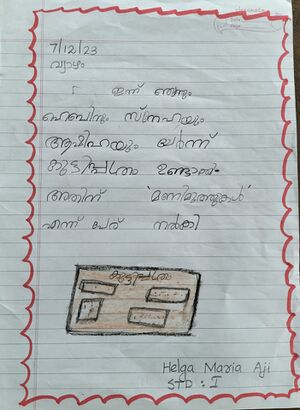 7/12/23
വ്യാഴം
ഇന്ന് ഞാനും
ഹെബിനും സ്നേഹയും
ആഷിഹയും ചേർന്ന്
കുട്ടിപ്പത്രം ഉണ്ടാക്കി.
അതിന് 'മണിമുത്തുകൾ'
എന്ന് പേര് നൽകി
കുട്ടിപത്രം
Helga Maria Aji
STD : I